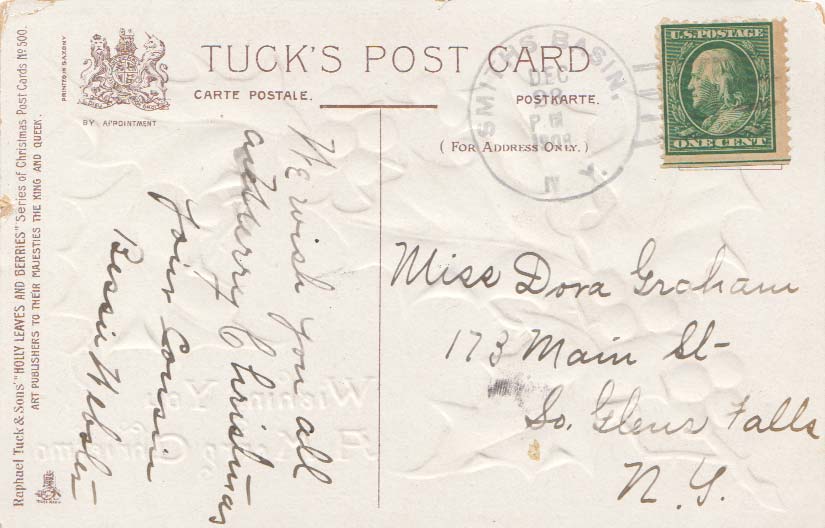 TUCK'S POST CARD
CARTE POSTALE.
POSTKARTE.
(FOR ADDRESS ONLY.)
PRINTED IN SAXONY
BY APPOINTMENT
Raphael Tuck & Sons' "HOLLY LEAVES AND BERRIES" Series of Christmas Post Cards No 500.
ART PUBLISHERS TO THEIR MAJESTIES THE KING AND QUEEN.
SMITHS BASIN,
DEC
22
P M
1908
N. Y.
U.S. POSTAGE
ONE CENT
We wish you all
a Merry Christmas
Your Cousin
Bessie Webster
Miss Dora Graham
173 Main St
So. Glens Falls
N.Y.
Wishing You
A Merry Christmas